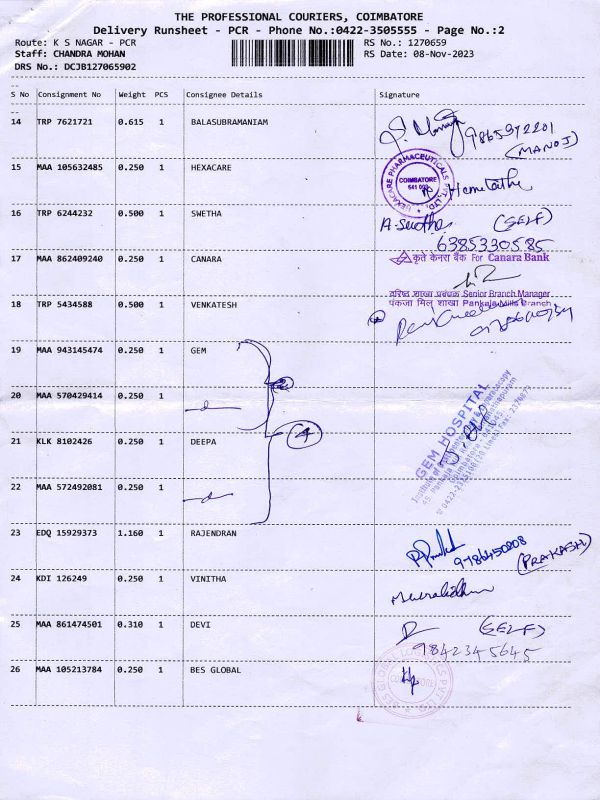 THE PROFESSIONAL COURIERS, COIMBATORE
Delivery Runsheet - PCR - Phone No.:0422-3505555 - Page No.:2
Route: K S NAGAR - PCR RS No.: 1270659
Staff: CHANDRA MOHAN RS Date: 08-Nov-2023
DRS No.: DCJB127065902
S No Consignment No Weight PCS Consignee Details Signature
14 TRP 7621721 0.615 1 BALASUBRAMANIAM
9865972201
(MANOJ)
15 MAA 105632485 0.250 1 HEXACARE
HEXACARE PHARMACEUTICALS PVT. LTD.
COIMBATORE
Hemalatha
16 TRP 6244232 0.500 1 SWETHA
(SELF)
6385330585
17 MAA 862409240 0.250 1 CANARA
कृते केनरा बैंक For Canara Bank
वरिष्ठ शाखा प्रबंधक Senior Branch Manager
पंकजा मिल् शाखा Pankaja Mills Branch
18 TRP 5434588 0.500 1 VENKATESH
19 MAA 943145474 0.250 1 GEM
20 MAA 570429414 0.250 1
GEM HOSPITAL
21 KLK 8102426 0.250 1 DEEPA
4
22 MAA 572492081 0.250 1
23 EDQ 15929373 1.160 1 RAJENDRAN
9786450808
(PRAKASH)
24 KDI 126249 0.250 1 VINITHA
Muralidharan
25 MAA 861474501 0.310 1 DEVI
(SELF)
9842345645
26 MAA 105213784 0.250 1 BES GLOBAL